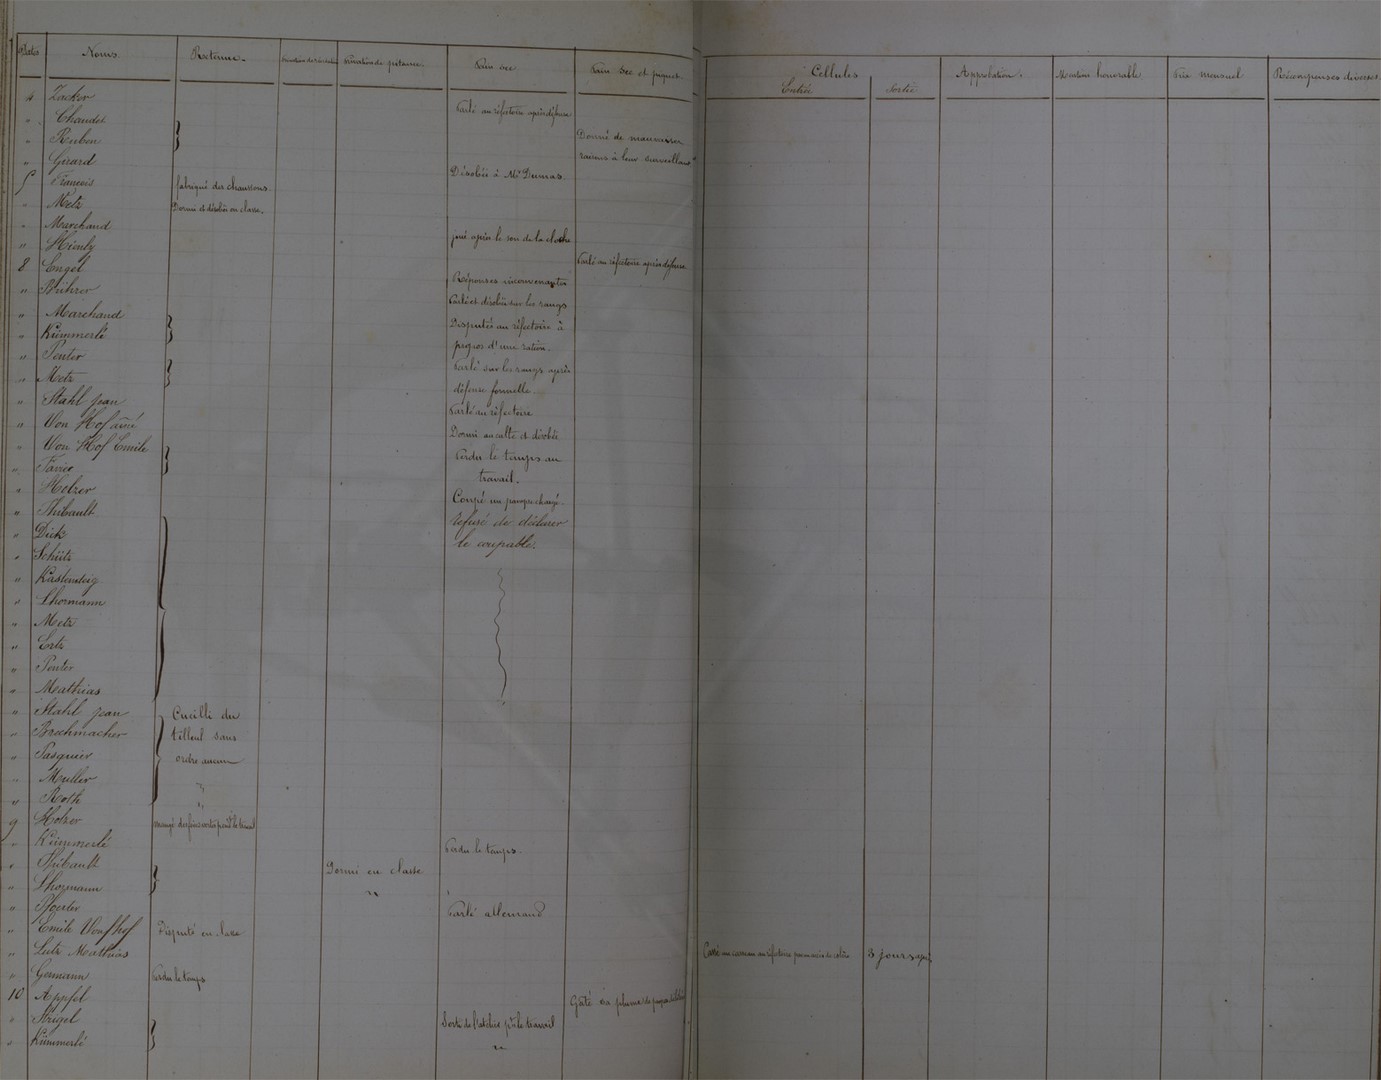 Dates Noms Retenue. Privation de récréation Privation de pitance. Pain sec Pain sec et piquet. Cellules Approbation. Mention honorable Prix mensuel Récompenses diverses.
Entrée Sortie
4 Zacker Parlé au réfectoire après défense
" Chaudet
" Ruben Donné de mauvaises
" Girard raisons à leur surveillant
5 François fabriqué des chaussons Désobéi à Mr Dumas
" Metz Dormi et désobéi en classe.
" Marchand
" Hiénly joué après le son de la cloche
8 Engel Parlé au réfectoire après défense
" Bührer Réponses inconvenantes
" Marchand Parlé et désobéi sur les rangs
" Kümmerlé Disputés au réfectoire à
" Penter propos d'une ration.
" Metz Parlé sur les rangs après
" Stahl Jean défense formelle
" Von Hof aîné Parlé au réfectoire
" Von Hof Emile Dormi au culte et désobéi
" Favier Perdu le temps au
" Holzer travail.
" Thibault Coupé un pampre chargé.
" Dick refusé de déclarer
" Schütz le coupable.
" Kastensteig
" Lhormann
" Metz
" Ertz
" Penter
" Mathias
" Stahl Jean Cueilli du
" Brechmacher tilleul sans
" Pasquier ordre aucun
" Muller "
" Roth "
9 Holzer
" Kümmerlé Perdu le temps.
" Thibault Dormi en classe
" Lhormann "
" Pfenter Parlé allemand
" Emile Vonhof Disputé en classe
" Lutz Mathias Cassé un carreau au réfectoire par accès de colère 3 jours
" Germann Perdu le temps
10 Appfel Gâté sa plume
" Strigel Sorti de l'atelier pdt le travail
" Kümmerlé "